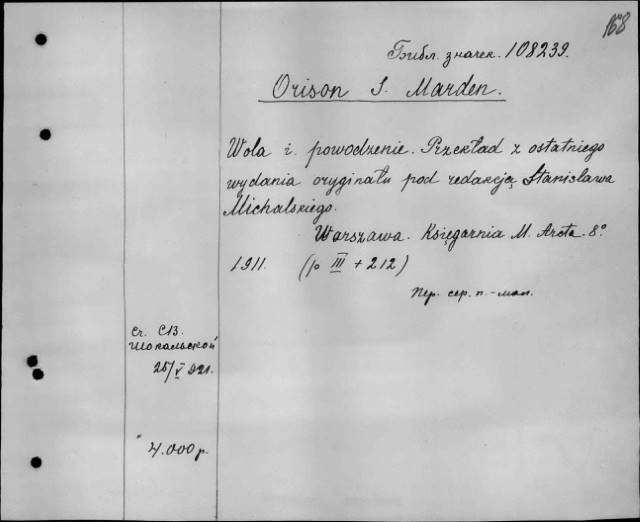 168
Библ. значек. 108239.
Orison S. Marden.
Wola i powodzenie. Przekład z ostatniego
wydania oryginału pod redakcją Stanisława
Michalskiego.
Warszawa. Księgarnia M. Arcta. 8°
1911. (p III + 212)
Пер. сер. п.-мал.
Ст. С13.
Шокальской
25/V 921.
4.000 р.